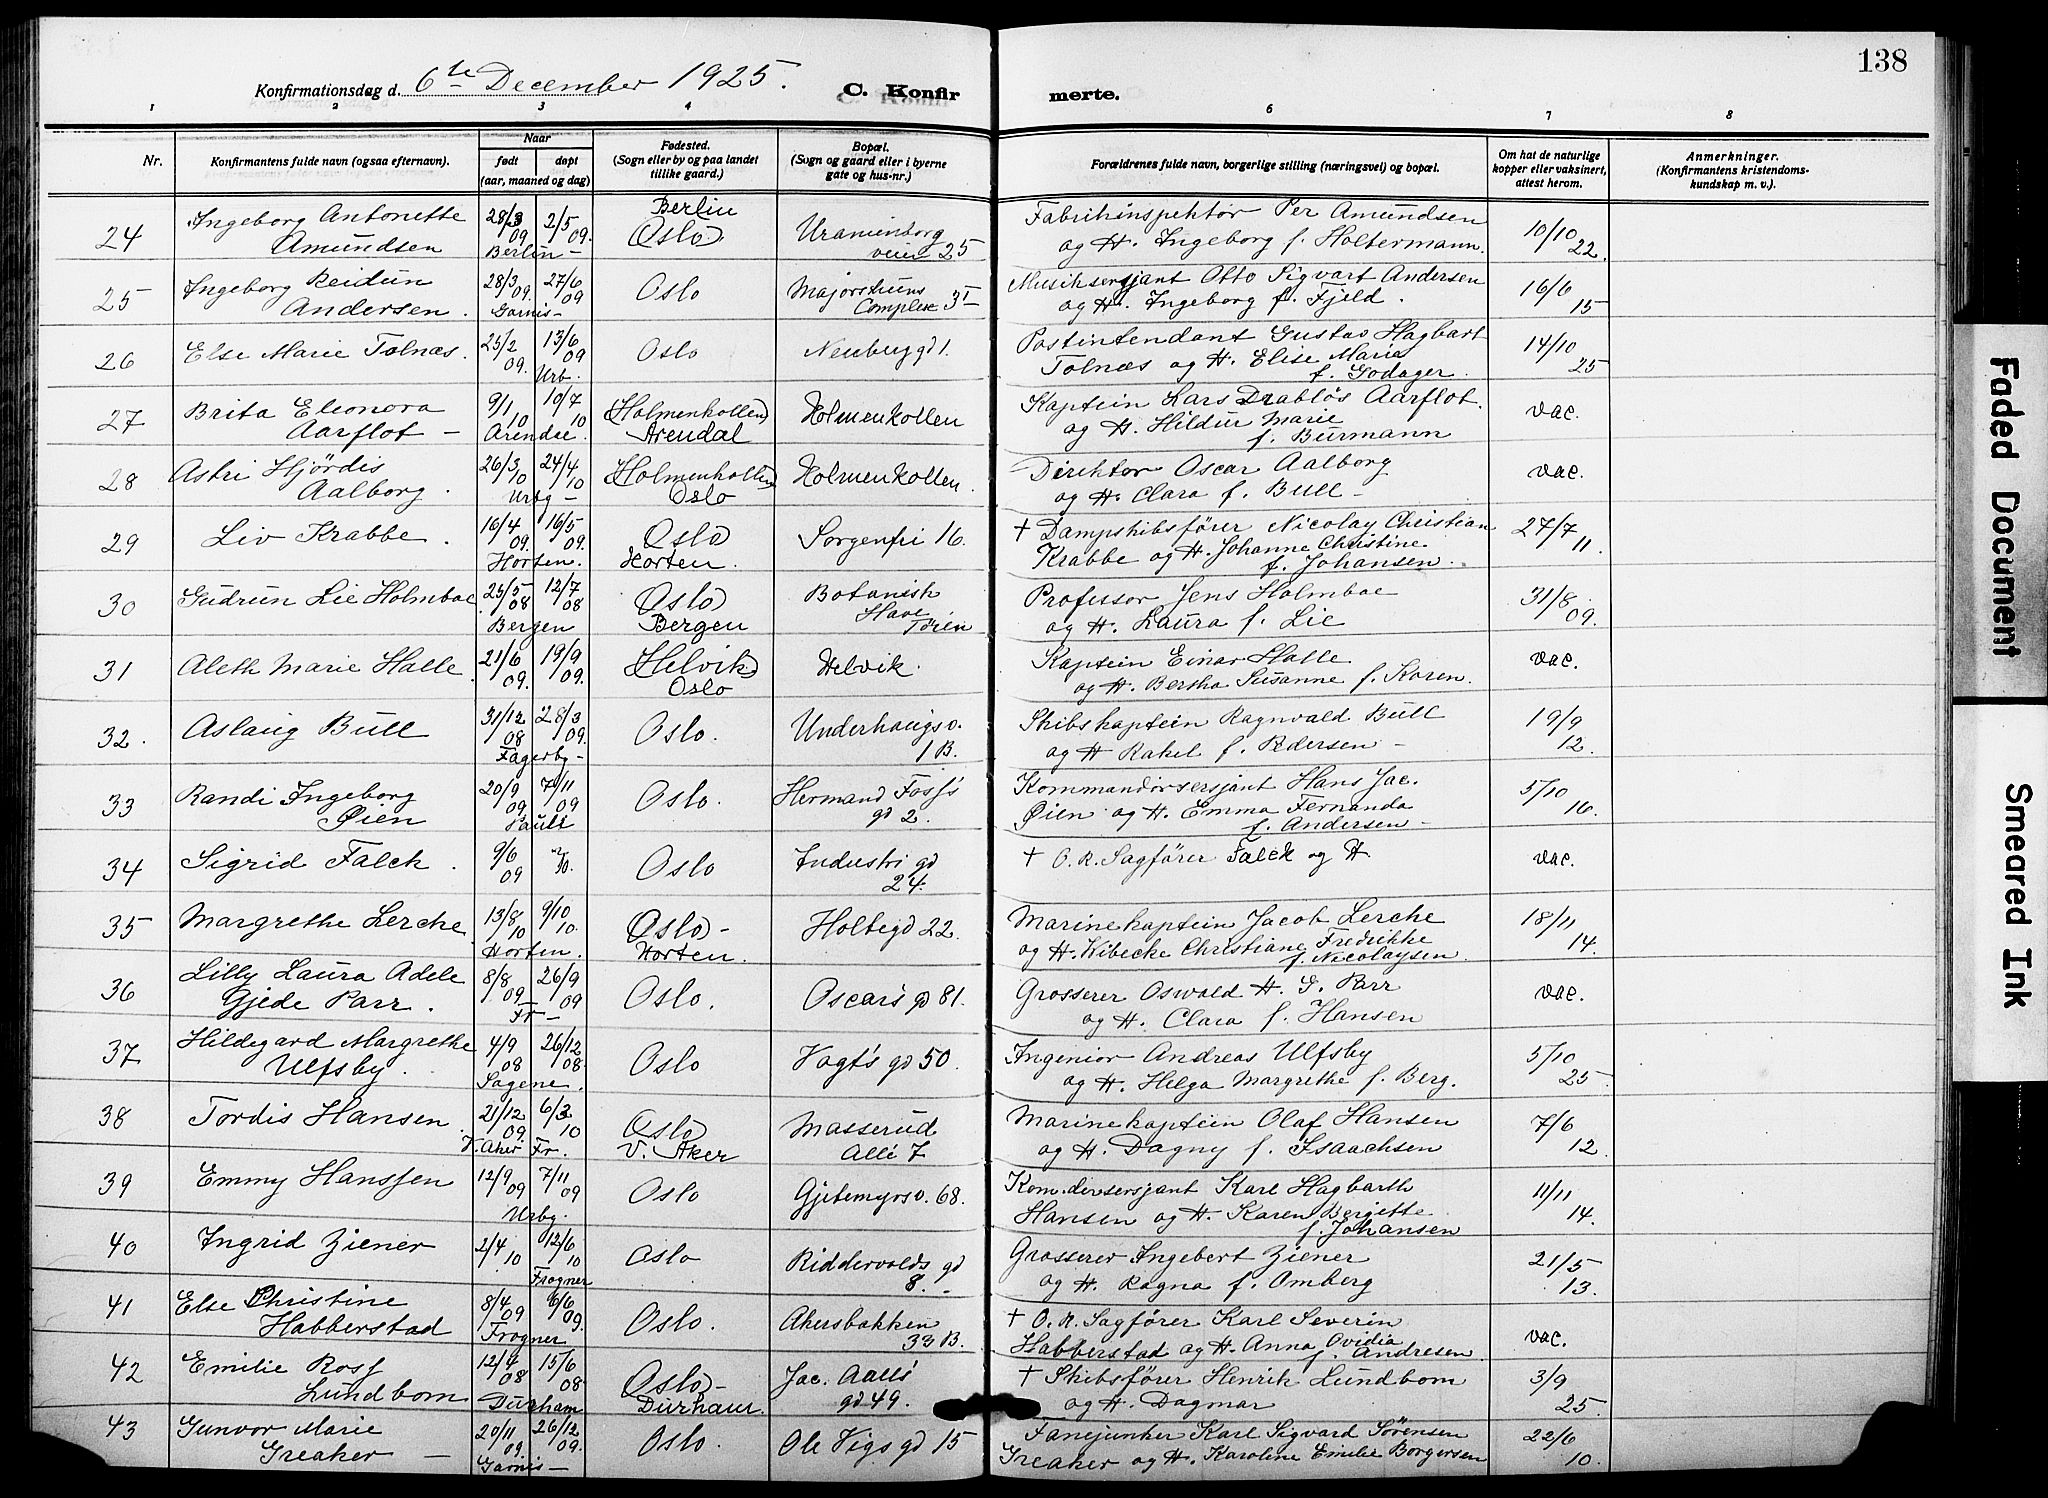 138
Konfirmationsdag d. 6te December 1925. C. Konfir merte.
1 2 3 4 6 7 8
Nr. Konfirmantens fulde navn (ogsaa efternavn). Naar født døpt (aar, maaned og dag)
Fødested. (Sogn eller by og paa landet tillike gaard.)
Bopæl. (Sogn og gaard eller i byerne gate og hus-nr.)
Forældrenes fulde navn, borgerlige stilling (næringsvei) og bopæl.
Om hat de naturlige kopper eller vaksinert, attest herom.
Anmerkninger. (Konfirmantens kristendomskundskap m. v.).
24 Ingeborg Antonette Amundsen 28/3 09 2/5 09. Berlin – Berlin (Oslo) Uranienborg veien 25 Fabrikinspektør Per Amundsen og H. Ingeborg f. Holtermann. 10/10 22.
25 Ingeborg Reidun Andersen. 28/3 09. 27/6 09 Garnis– Oslo Majorstuens Complex 3I Musiksersjant Otto Sigvart Andersen og H. Ingeborg f. Fjeld. 16/6 15
26 Else Marie Tolnæs. 25/2 09. 13/6 09 Urb. Oslo Neuberg gd 1. Postintendant Gustav Hagbart Tolnæs og H. Elise Marie f. Godager. 14/10 25
27 Brita Eleonora Aarflot – 9/1 10 10/7 10 Arendal. (Holmenkollen) Arendal Holmenkollen Kaptein Lars Drabløs Aarflot. og H. Hildur Marie f. Burmann vac.
28 Astri Hjördis Aalborg. 26/3 10 24/4 10 Urbg – (Holmenkollen) Oslo Holmenkollen. Direktör Oscar Aalborg og H. Clara f. Bull – vac.
29 Liv Krabbe. 16/4 09. 16/5 09. Horten. (Oslo) Horten. Sorgenfri 16. † Dampskibsfører Nicolay Christian Krabbe og H. Johanne Christine f. Johansen. 27/7 11.
30 Gudrun Lie Holmboe. 25/5 08 12/7 08 Bergen (Oslo) Bergen Botanisk Have Tøien Professor Jens Holmboe og H. Laura f. Lie 31/8 09.
31 Aleth Marie Halle. 21/6 09. 19/9 09. (Helvik) Oslo Helvik. Kaptein Einar Halle og H. Bertha Susanne f. Koren. vac.
32. Aslaug Bull 31/12 08 28/3 09. Fagerbg – Oslo. Underhaugsv. 1 B. Skibskaptein Ragnvald Bull og H Rakel f. Pedersen – 19/9 12.
33 Randi Ingeborg Øien 20/9 09 7/11 09 Pauls Oslo. Hermand Foss's gd 2. Kommandörsersjant Hans Jac. Øien og H. Emma Fernanda f. Andersen – 5/10 16.
34 Sigrid Falck. 9/6 09 Oslo Industri gd 24. † O. R. Sagfører Falck og H. vac.
35 Margrethe Lerche. 13/8 10 9/10 10. Horten. (Oslo) – Horten. Holtegd 22. Marinekaptein Jacob Lerche og H. Vibecke Christiane Fredrikke f. Nicolaysen 18/11 14.
36 Lilly Laura Adele Gjede Parr. 8/8 09 26/9 09 Fr – Oslo. Oscars gd 81. Grosserer Oswald H. G. Parr og H. Clara f. Hansen vac.
37 Hildegard Margrethe Ulfsby. 4/9 08 26/12 08. Sagene. Oslo Vogt's gd 50. Ingeniør Andreas Ulfsby og H. Helga Margrethe f. Berg. 5/10 25
38 Tordis Hansen. 21/12 09. 6/3 10 V. Aker Fr. (Oslo) V. Aker Masserud Allé 7 Marinekaptein Olaf Hansen og H. Dagny f. Isaachsen 7/6 12
39 Emmy Hanssen 12/9 09 7/11 09 Urbg. Oslo Gjetemyrsv. 68. Kom.dersersjant Karl Hagbarth Hansen og H. Karen Bergette f. Johansen 11/11 14.
40 Ingrid Ziener 2/4 10 12/6 10 Frogner Oslo Riddervolds gd 8. Grosserer Ingebert Ziener og H. Ragna f. Omberg 21/5 13.
41 Else Christine Habberstad 8/4 09 6/6 09. Frogner Oslo. Akersbakken 33 B. † O. R. Sagfører Karl Severin Habberstad og H. Anna Ovidia f. Andresen vac.
42 Emilie Ross Lundbom 12/4 08 15/6 08 Durham (Oslo) – Durham. Jac. Aalls gd 49. † Skibsfører Henrik Lundbom og H. Dagmar 3/9 25.
43 Gunvor Marie Greaker – 20/11 09. 26/12 09. Garnis – Oslo. Ole Vigs gd 15 Fanejunker Karl Sigvard Sørensen Greaker og H. Karoline Emilie Borgersen 22/6 10.
Faded Document
Smeared Ink